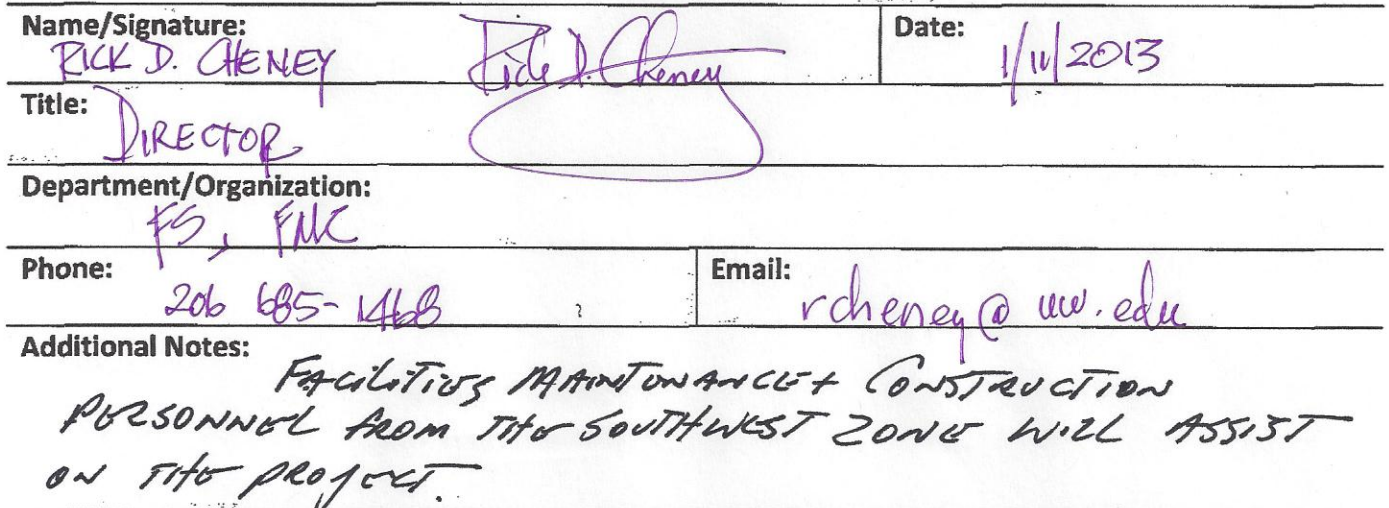 Name/Signature: Date:
RICK D. CHENEY Rick D. Cheney 1/11/2013
Title:
DIRECTOR
Department/Organization:
FS, FMC
Phone: Email:
206 685-1468 rcheney@uw.edu
Additional Notes:
FACILITIES MAINTENANCE + CONSTRUCTION
PERSONNEL FROM THE SOUTHWEST ZONE WILL ASSIST
ON THE PROJECT.